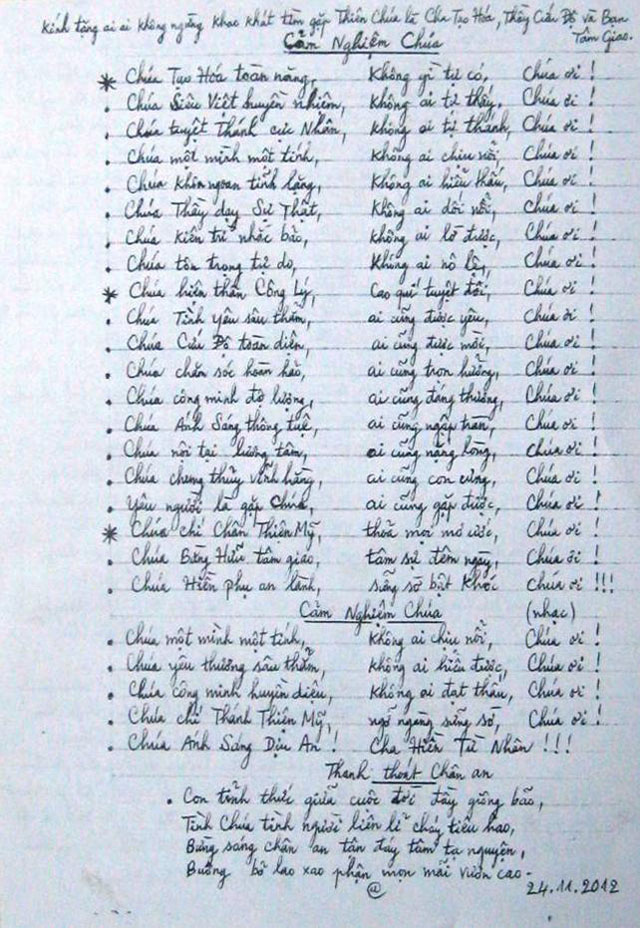 Kính tặng ai ai không ngừng khao khát tìm gặp Thiên Chúa là Cha Tạo Hóa, Thầy Cứu Độ và Bạn
Tâm Giao.
Cảm Nghiệm Chúa
* Chúa Tạo Hóa toàn năng, không gì tự có, Chúa ơi !
. Chúa Siêu Việt huyền nhiệm, không ai từ thấy, Chúa ơi !
. Chúa tuyệt thánh cực Nhân, không ai tự thánh, Chúa ơi !
. Chúa một mình một tính, không ai chịu nổi, Chúa ơi !
. Chúa khôn ngoan tĩnh lặng, không ai hiểu thấu, Chúa ơi !
. Chúa Thầy dạy Sự Thật, không ai dối nổi, Chúa ơi !
. Chúa kiên trì nhắc bảo, không ai lờ được, Chúa ơi !
. Chúa tôn trọng tự do, không ai nô lệ, Chúa ơi !
* Chúa hiện thân Công Lý, cao quí tuyệt đối, Chúa ơi !
. Chúa Tình yêu sâu thẳm, ai cũng được yêu, Chúa ơi !
. Chúa Cứu Độ toàn diện, ai cũng được mời, Chúa ơi !
. Chúa chăm sóc hoàn hảo, ai cũng trọn hưởng, Chúa ơi !
. Chúa công minh đo lường, ai cũng đáng thưởng, Chúa ơi !
. Chúa Ánh Sáng thông tuệ, ai cũng ngập tràn, Chúa ơi !
. Chúa nội tại lương tâm, ai cũng nặng lòng, Chúa ơi !
. Chúa chung thủy vĩnh hằng, ai cũng con cưng, Chúa ơi !
. Yêu người là gặp Chúa, ai cũng gặp được, Chúa ơi !
* Chúa chí Chân Thiện Mỹ, thỏa mọi mơ ước, Chúa ơi !
. Chúa Bằng Hữu tâm giao, tâm sự đêm ngày, Chúa ơi !
. Chúa Hiền phụ an lành, sững sờ bật khóc Chúa ơi !!!
Cảm Nghiệm Chúa (nhạc)
. Chúa một mình một tính, không ai chịu nổi, Chúa ơi !
. Chúa yêu thương sâu thẳm, không ai hiểu được, Chúa ơi !
. Chúa công minh huyền diệu, không ai đạt thấu, Chúa ơi !
. Chúa chí Thánh Thiện Mỹ, ngỡ ngàng sững sờ, Chúa ơi !
. Chúa Ánh Sáng Dịu An ! Cha Hiền Từ Nhân !!!
Thanh thoát Chân an
. Con tỉnh thức giữa cuộc đời đầy giông bão,
Tình Chúa tình người liên lỉ cháy tiêu hao,
Bừng sáng chân an tận đáy tâm tạ nguyện,
Buông bỏ lao xao phận mọn mãi vươn cao.
@ 24.11.2012